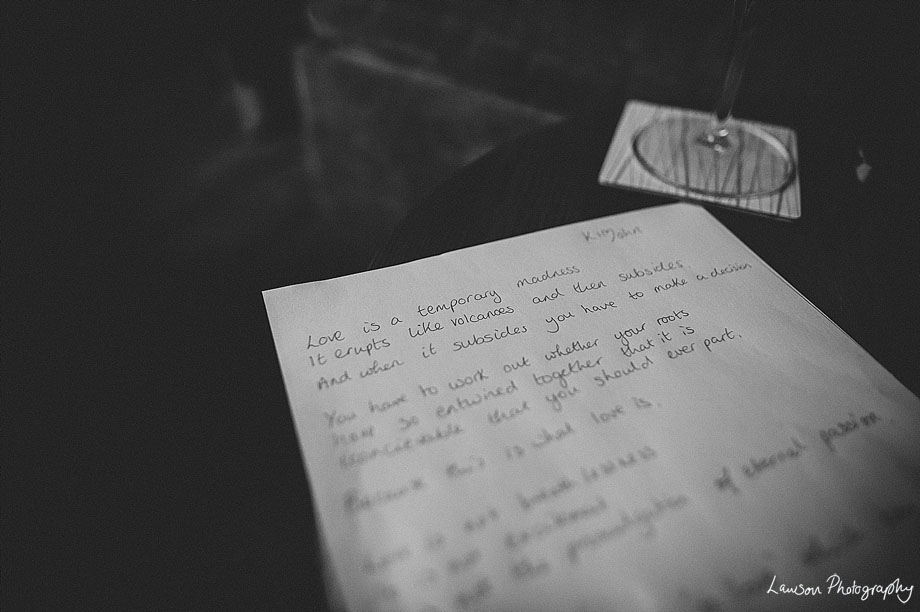 Kim John
Love is a temporary madness
It erupts like volcanoes and then subsides
And when it subsides you have to make a decision
You have to work out whether your roots
have so entwined together that it is
inconceivable that you should ever part.
Because this is what love is.
Love is not breathlessness
It is not excitement
not the promulgation of eternal passion
love which
Lawson Photography